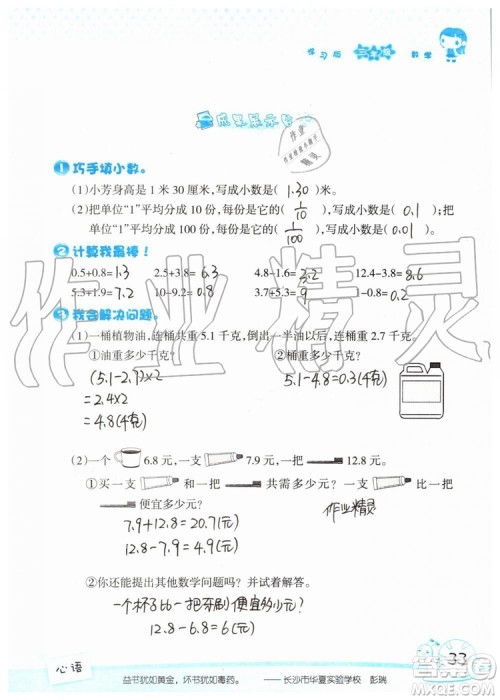 练习版 三年级 数学
成果展示台
作业
精灵
1 巧手填小数。
(1)小芳身高是1米30厘米,写成小数是(1.30)米。
(2)把单位“1”平均分成10份,每份是它的(1/10),写成小数是(0.1);把
单位“1”平均分成100份,每份是它的(1/100),写成小数是(0.01)。
2 计算我最棒!
0.5+0.8=1.3 2.5+3.8=6.3 4.8-1.6=3.2 12.4-3.8=8.6
5.3+1.9=7.2 10-9.2=0.8 3.7+5.3=9
3 我会解决问题。
(1)一桶植物油,连桶共重5.1千克,倒出一半油以后,连桶重2.7千克。
①油重多少千克? ②桶重多少千克?
(5.1-2.7)×2 5.1-4.8=0.3(千克)
=2.4×2
=4.8(千克)
(2)一个 6.8元,一支 7.9元,一把 12.8元。
①买一支 和一把 共需多少元?一支 比一把
便宜多少元?
7.9+12.8=20.7(元)
12.8-7.9=4.9(元)
作业精灵
②你还能提出其他数学问题吗?并试着解答。
一个杯子比一把牙刷便宜多少元?
12.8-6.8=6(元)
作业精灵
心语
益书犹如黄金,坏书犹如毒药。 ——长沙市华夏实验学校 彭瑞
33